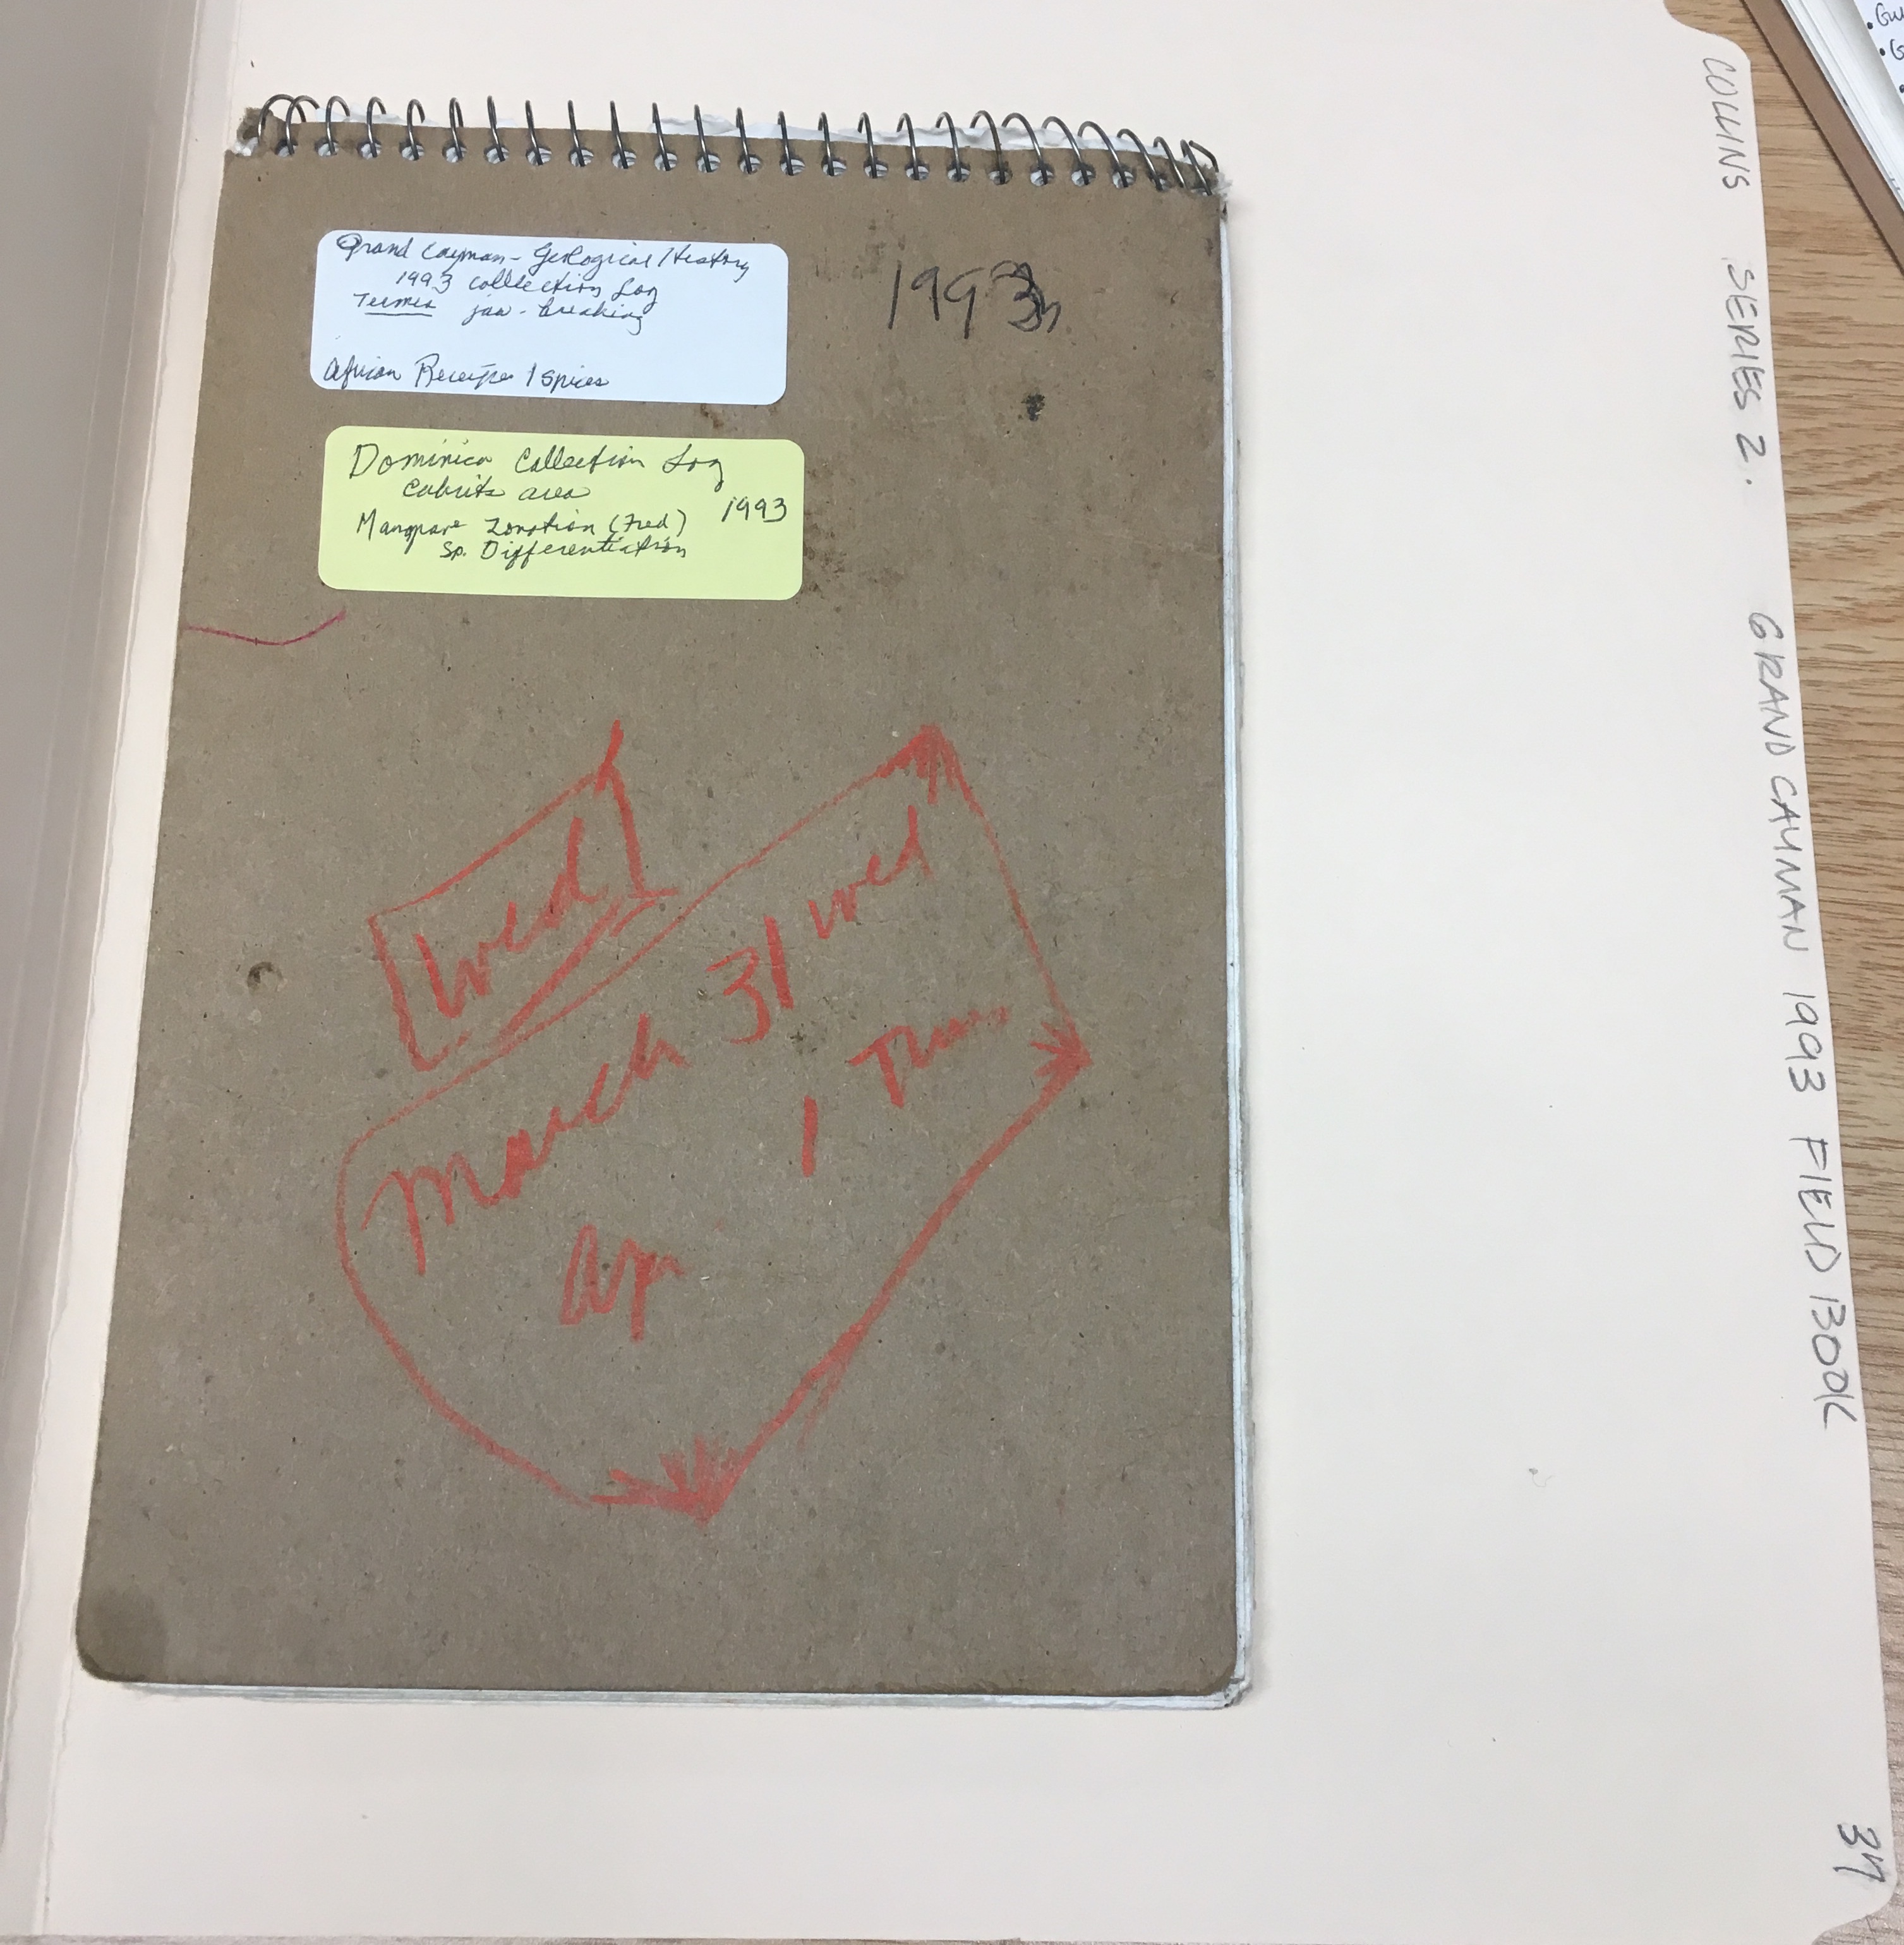 Grand Cayman - Geological History
1993 collection Log
Terms jaw-breaking
African Receipes / Spices
1993
Dominica Collection Log
Cabrits area
1993
Mangrove Zonation (Fred)
Sp. Differentiation
Wed
March 31 Wed
Ap 1 Thurs
COLLINS SERIES 2. GRAND CAYMAN 1993 FIELD BOOK